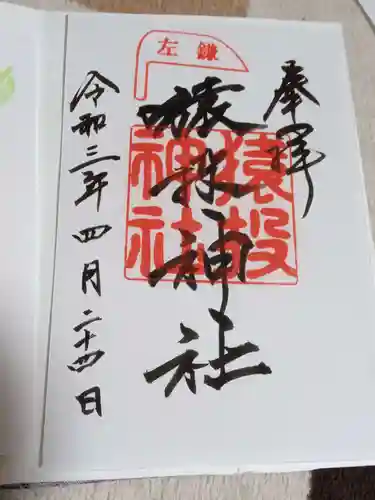 奉拝
左鎌
猿投神社
猿投神社
令和三年四月二十四日